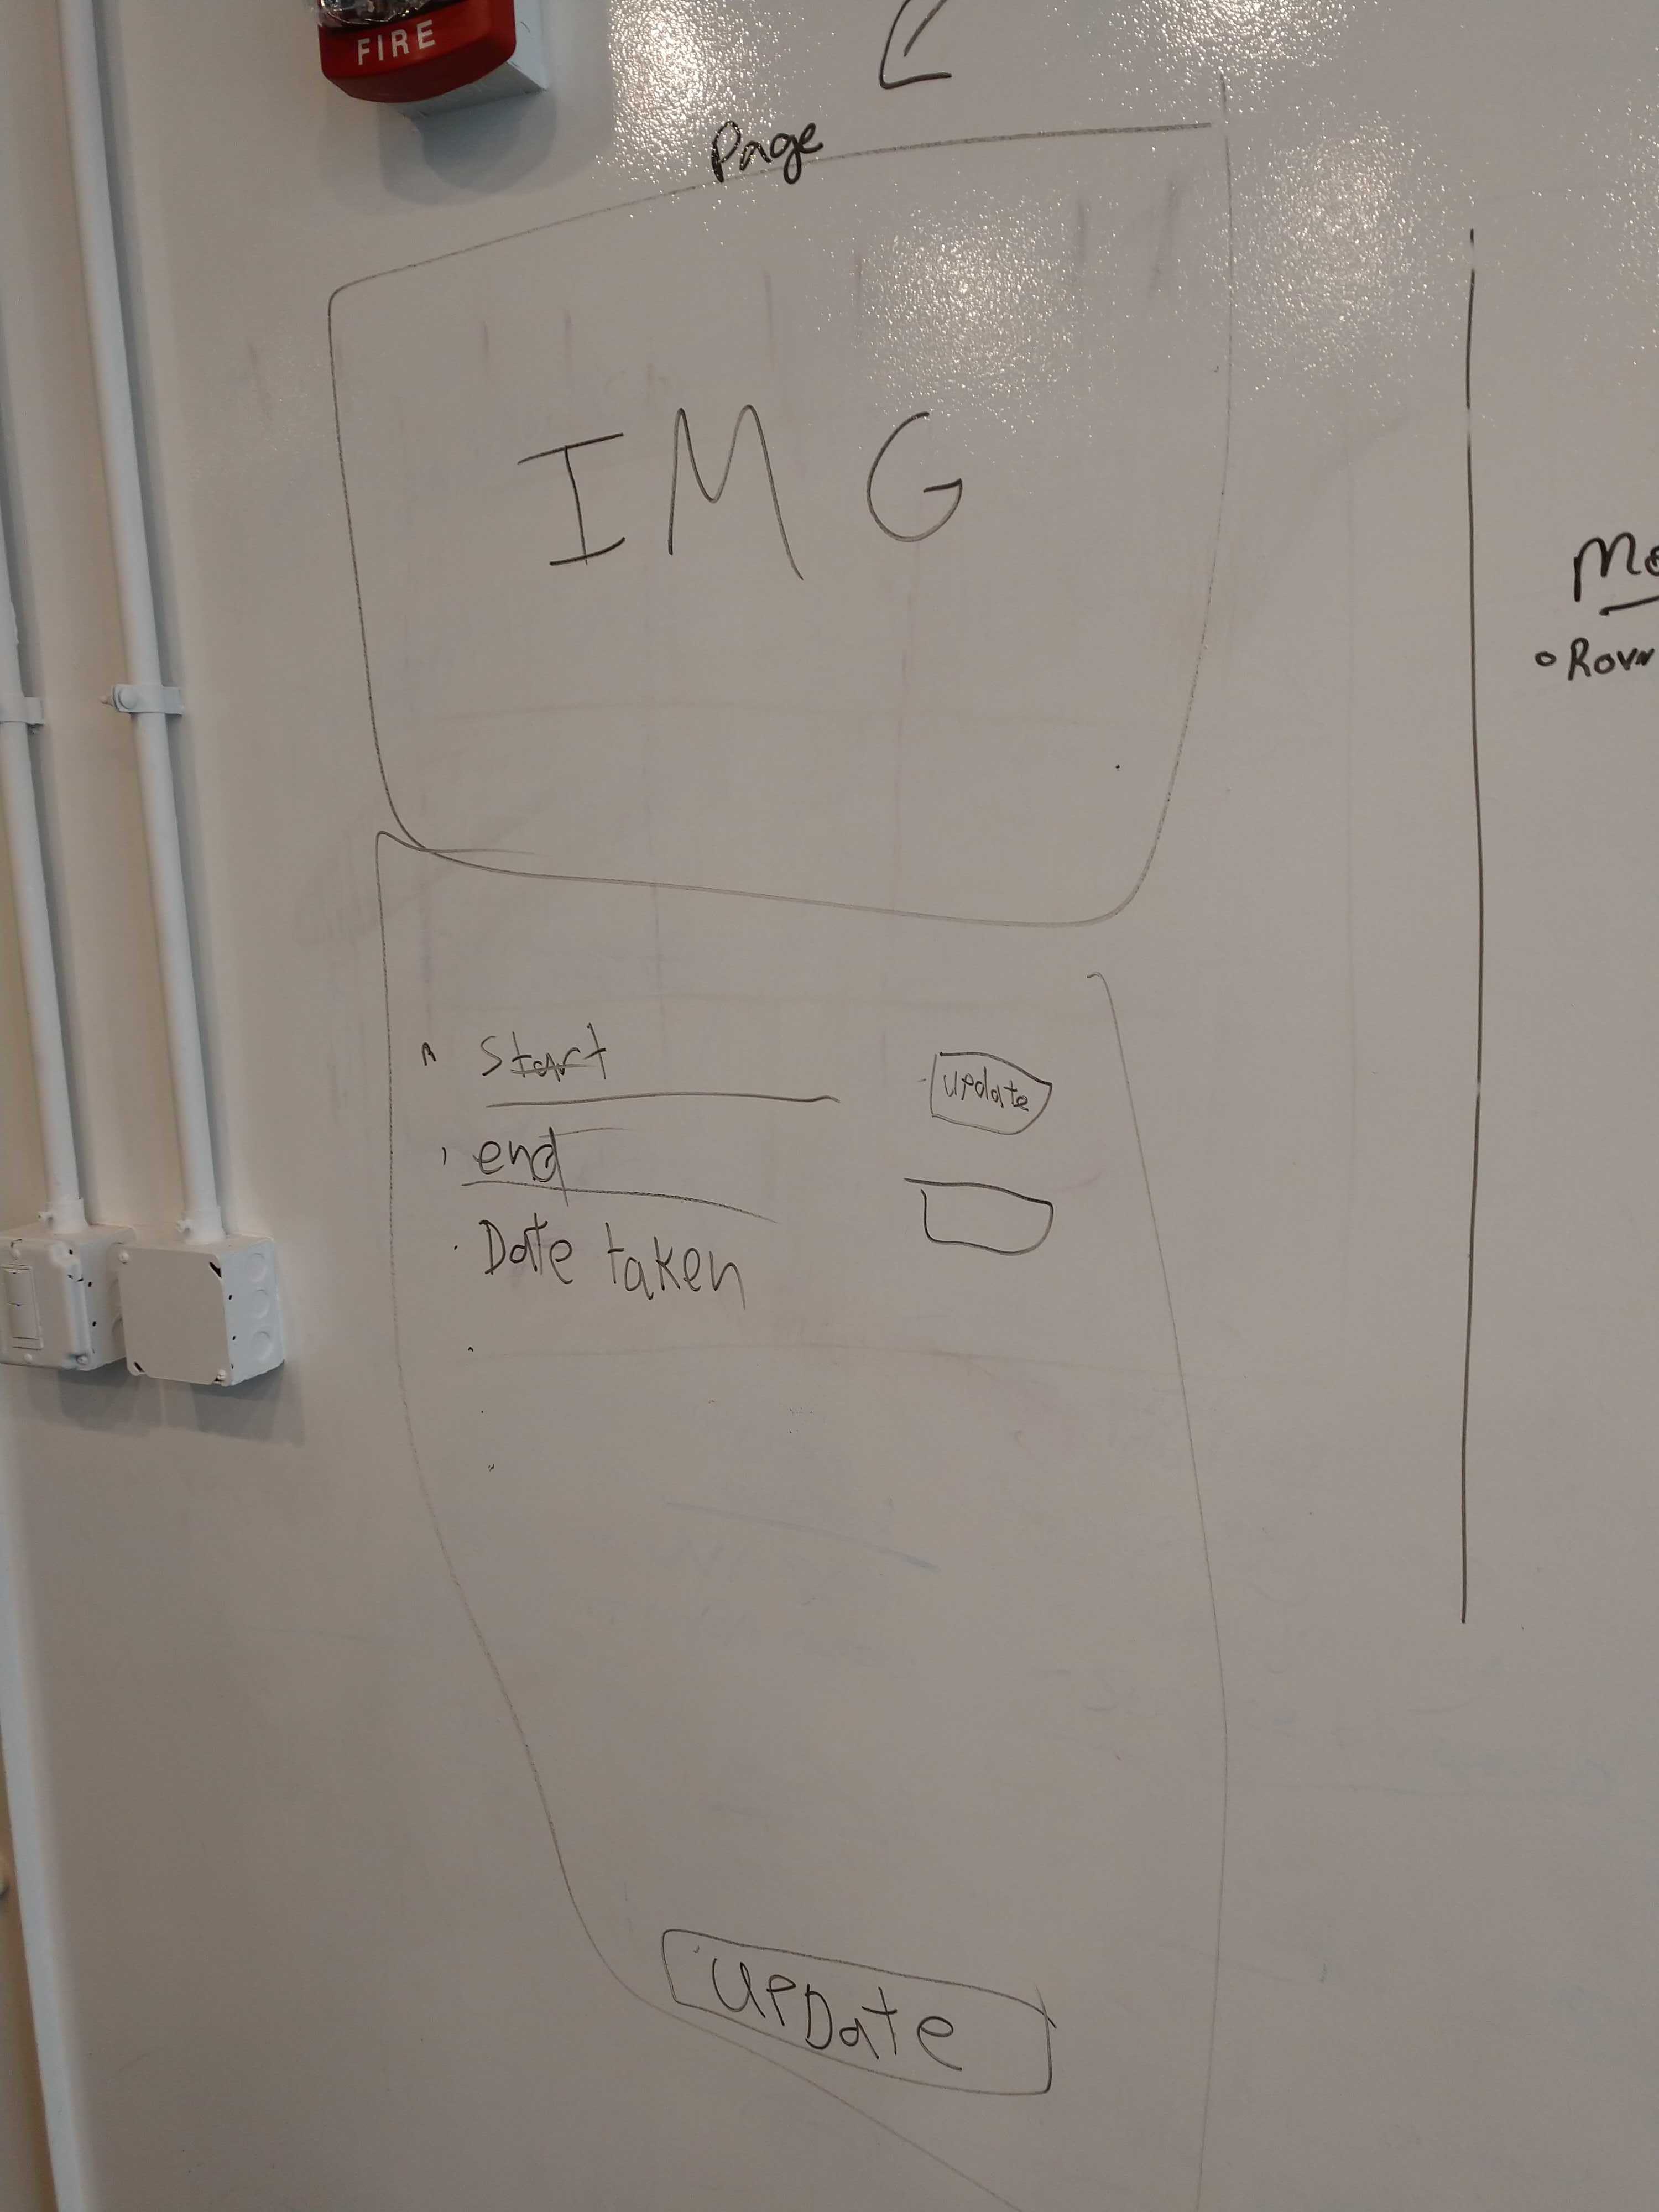 FIRE
Page
IMG
Start
update
end
Date taken
UPDate